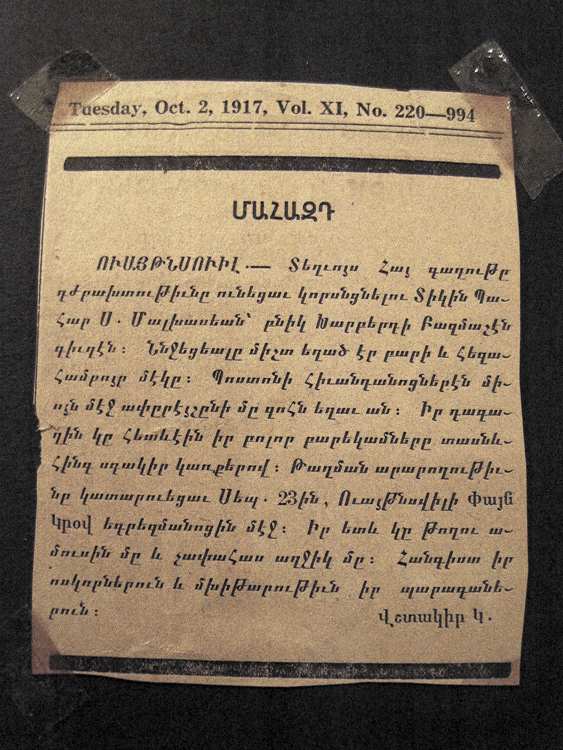 Tuesday, Oct. 2, 1917, Vol. XI, No. 220—994
ՄԱՀԱԶԴ
ՈՒԱՅԹՆՍՈՒԻԼ.— Տեղւոյս Հայ գաղութը
դժբախտութիւնը ունեցաւ կորսնցնելու Տիկին Պա-
հար Ս. Մալխասեան՝ բնիկ Խարբերդի Բազմաշէն
գիւղէն։ Ննջեցեալը միշտ եղած էր բարի և հեզա-
համբոյր մէկը։ Պոստոնի Հիւանդանոցներէն մի-
ոյն մէջ ափըրէյշընի մը զոհն եղաւ ան։ Իր դագա-
ղին կը հետևէին իր բոլոր բարեկամները տասնև-
հինգ սգակիր կառքերով։ Թաղման արարողութիւ-
նը կատարուեցաւ Սեպ. 23ին, Ուայթնսվիլի Փայն
կրով եգրեզմանոցին մէջ։ Իր ետև կը թողու ա-
մուսին մը և չափահաս աղջիկ մը։ Հանգիստ իր
ոսկորներուն և մխիթարութիւն իր պարագանե-
րուն։ Վշտակիր Կ.